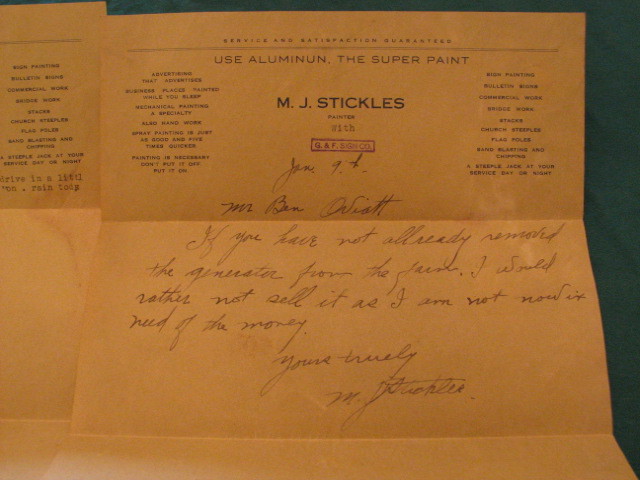 SIGN PAINTING
BULLETIN SIGNS
COMMERCIAL WORK
BRIDGE WORK
STACKS
CHURCH STEEPLES
FLAG POLES
SAND BLASTING AND
CHIPPING
A STEEPLE JACK AT YOUR
SERVICE DAY OR NIGHT
drive in a littl
rain toda
SERVICE AND SATISFACTION GUARANTEED
USE ALUMINUN, THE SUPER PAINT
ADVERTISING
THAT ADVERTISES
BUSINESS PLACES PAINTED
WHILE YOU SLEEP
MECHANICAL PAINTING
A SPECIALTY
ALSO HAND WORK
SPRAY PAINTING IS JUST
AS GOOD AND FIVE
TIMES QUICKER.
PAINTING IS NECESSARY
DON'T PUT IT OFF,
PUT IT ON.
M. J. STICKLES
PAINTER
With
G. & F. SIGN CO.
SIGN PAINTING
BULLETIN SIGNS
COMMERCIAL WORK
BRIDGE WORK
STACKS
CHURCH STEEPLES
FLAG POLES
SAND BLASTING AND
CHIPPING
A STEEPLE JACK AT YOUR
SERVICE DAY OR NIGHT
Jan. 9th.
Mr Ben Oviatt
If you have not allready removed
the generater from the farm. I would
rather not sell it as I am not now in
need of the money.
Yours truely
M. J Stickles.